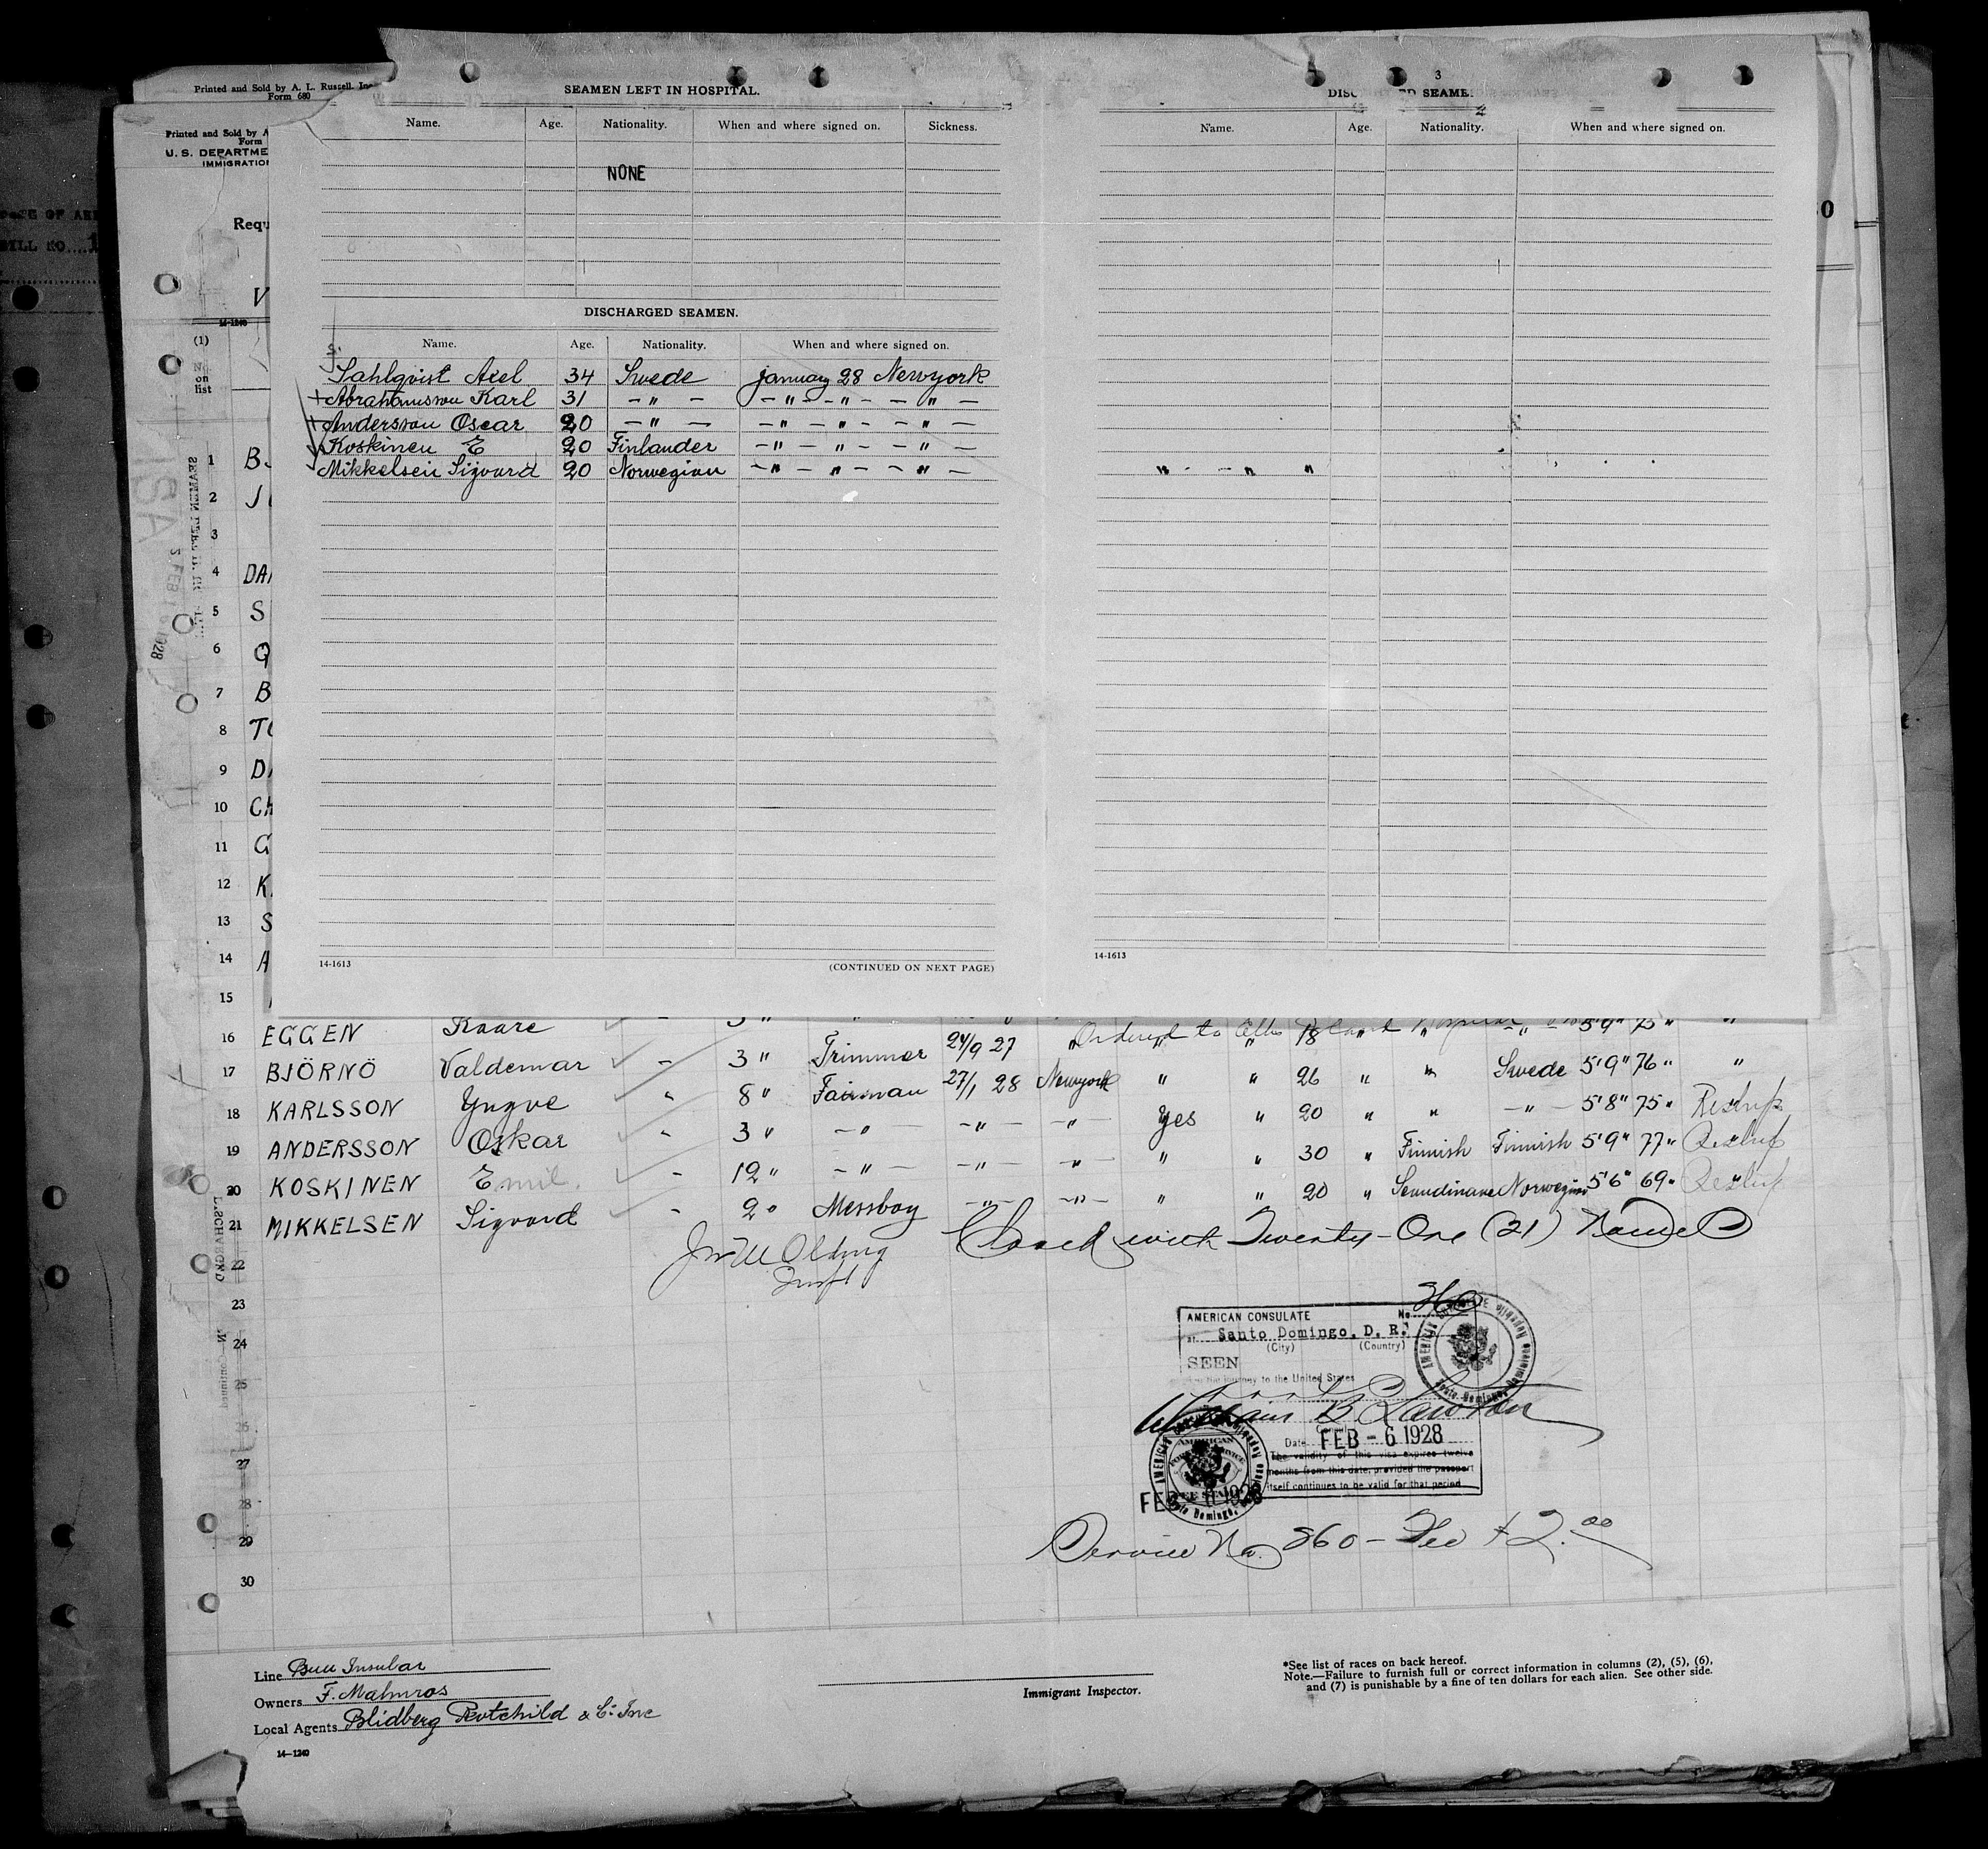 Printed and Sold by A. L. Russell. Inc
Form 680
Printed and Sold by A
Form
U. S. DEPARTME
IMMIGRATION
Requ
V
14-1240
(1)
No
on
list
SEAMEN LEFT IN HOSPITAL.
Name. Age. Nationality. When and where signed on. Sickness.
NONE
DISCHARGED SEAMEN.
Name. Age. Nationality. When and where signed on.
Sahlqvist Axel 34 Swede january 28 Newyork
+Abrahamsson Karl 31 - " - - " - - " - - " -
Andersson Oscar 20 - " - - " - " - - " -
Koskinen E 20 Finlander - " - " - - " -
Mikkelsen Sigvard 20 Norwegian - " - " - - " -
14-1613
(CONTINUED ON NEXT PAGE)
3
DISC ED SEAME
Name. Age. Nationality. When and where signed on.
" - - " "
14-1613
1 B
2 J
3
4 DA
5 S
6
7 B
8 T
9 D
10 CH
11 G
12 K
13 S
14 A
15
16 EGGEN Kaare 3 " " Ordered to Ellis Island Hospital 5'9" 75 " "
17 BJÖRNÖ Valdemar - 3 " Trimmer 24/9 27 " " " 26 " " Swede 5'9" 76 " "
18 KARLSSON Yngve " 8 " Fairman 27/1 28 Newyork " " 20 " " - " - 5'8" 75 "
19 ANDERSSON Oskar " 3 " - " - - " - - " - Yes " 30 " Finnish Finnish 5'9" 77 "
20 KOSKINEN Emil. - 12 " - " - - " - - " - " " 20 " Scandinave Norwegian 5'6" 69 "
21 MIKKELSEN Sigvard - 2 " Messboy - " - - " - "
Closed with Twenty-One (21) Names
22
23
24
25
26
27
28
29
30
AMERICAN CONSULATE No 360
at Santo Domingo, D. R.
(City) (Country)
SEEN
journey to the United States
William B Lawton
Date FEB - 6 1928
The validity of this visa expires twelve
months from this date, provided the passport
itself continues to be valid for that period
Service No. 360 - Fee $2.00
Line Bull Insular
Owners F. Malmros
Local Agents Blidberg Rotchild & C: Inc
14-1240
Immigrant Inspector.
*See list of races on back hereof.
Note.—Failure to furnish full or correct information in columns (2), (5), (6),
and (7) is punishable by a fine of ten dollars for each alien. See other side.